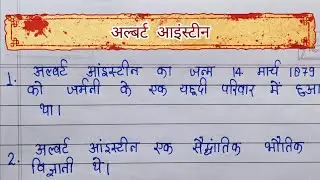 अल्बर्ट आइंस्टीन
1. अल्बर्ट आंइस्टीन का जन्म 14 मार्च 1879
को जर्मनी के एक यहूदी परिवार में हुआ
था।
2. अल्बर्ट आंइस्टीन एक सैद्धांतिक भौतिक
विज्ञानी थे।